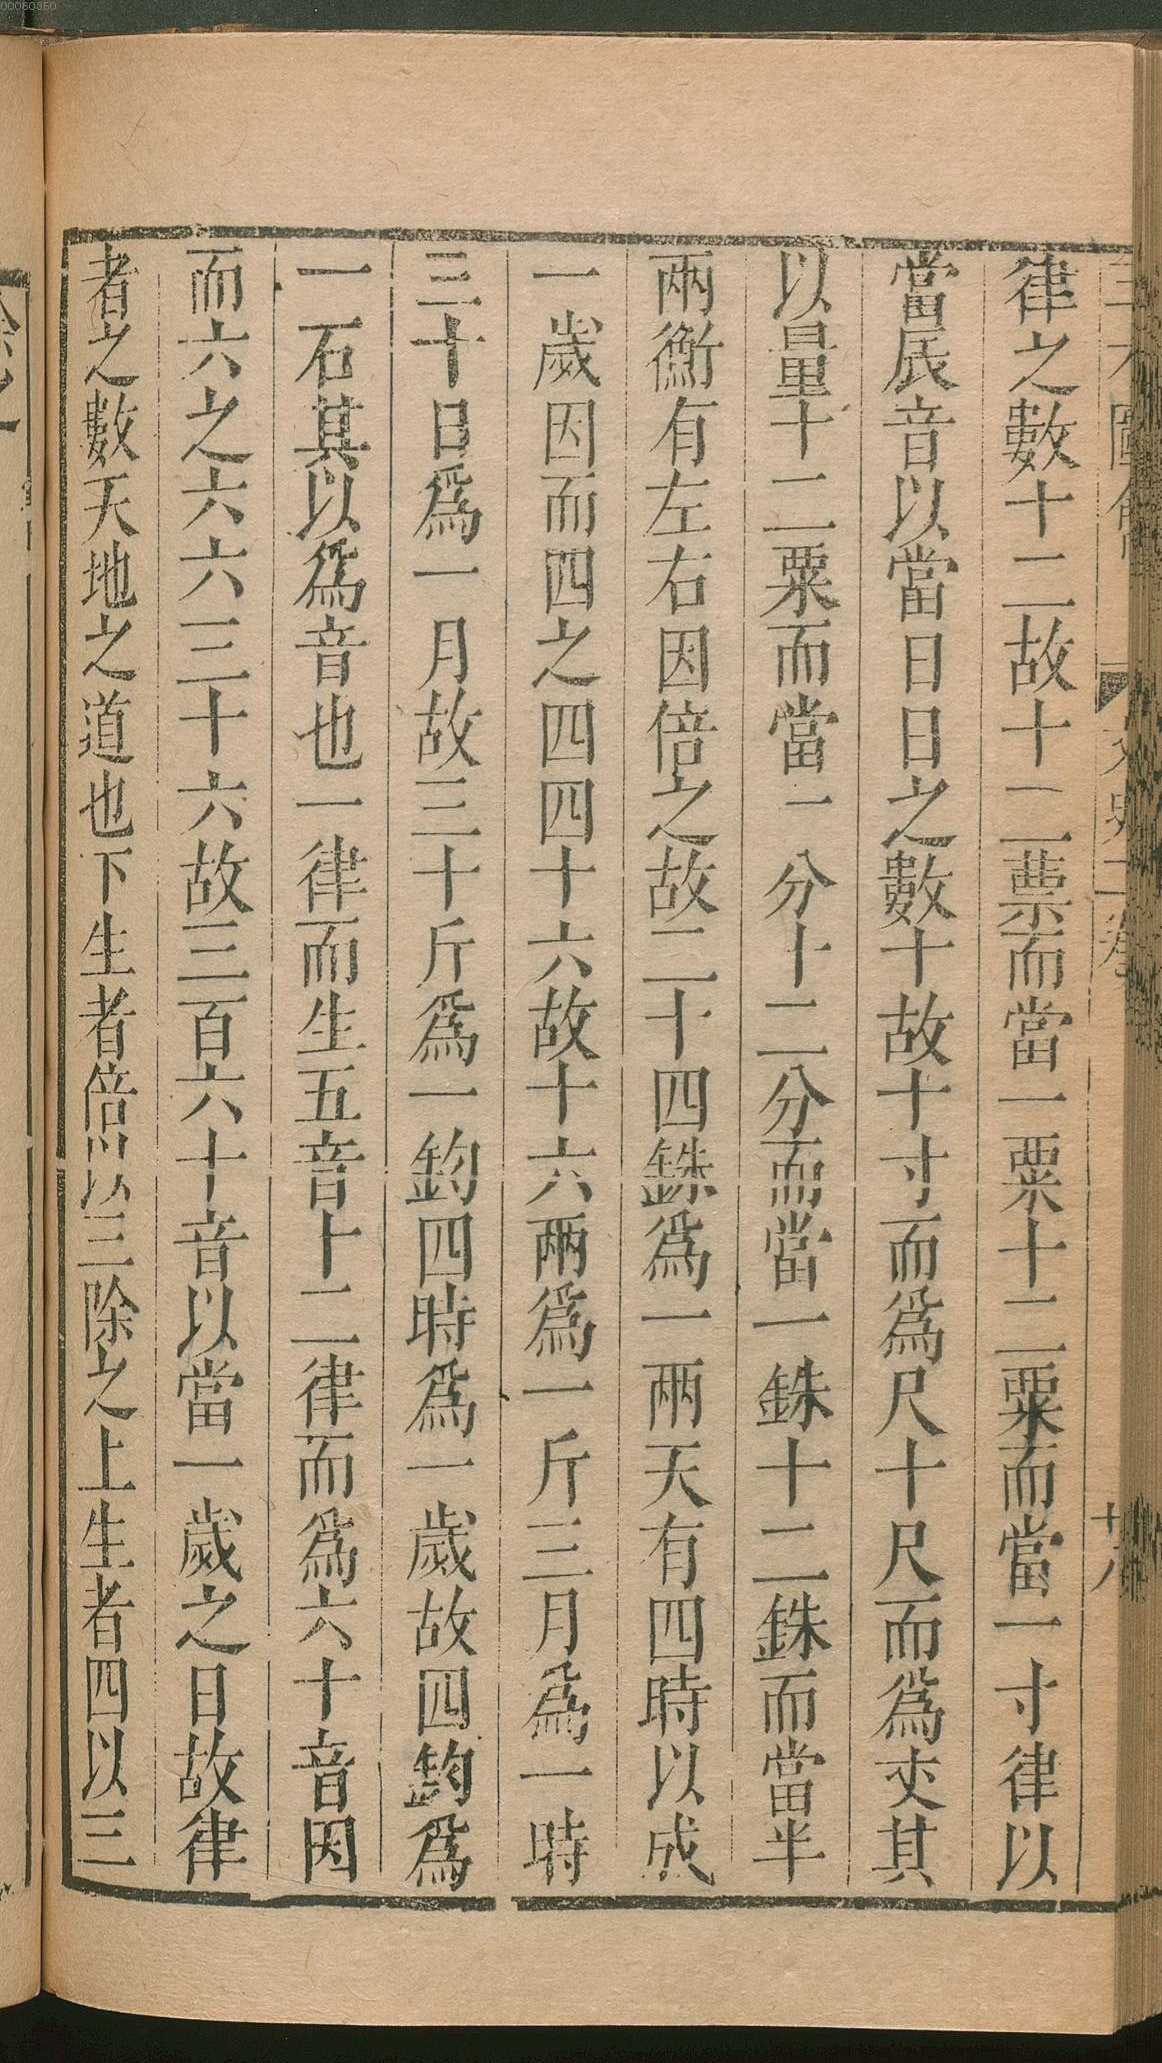 律之數十二故十二蔈而當一粟十二粟而當一寸律以
當辰音以當日日之數十故十寸而為尺十尺而為丈其
以量十二粟而當一分十二分而當一銖十二銖而當半
兩衡有左右因倍之故二十四銖為一兩天有四時以成
一歲因而四之四四十六故十六兩為一斤三月為一時
三十日為一月故三十斤為一鈞四時為一歲故四鈞為
一石其以為音也一律而生五音十二律而為六十音因
而六之六六三十六故三百六十音以當一歲之日故律
者之數天地之道也下生者倍以三除之上生者四以三
00060850